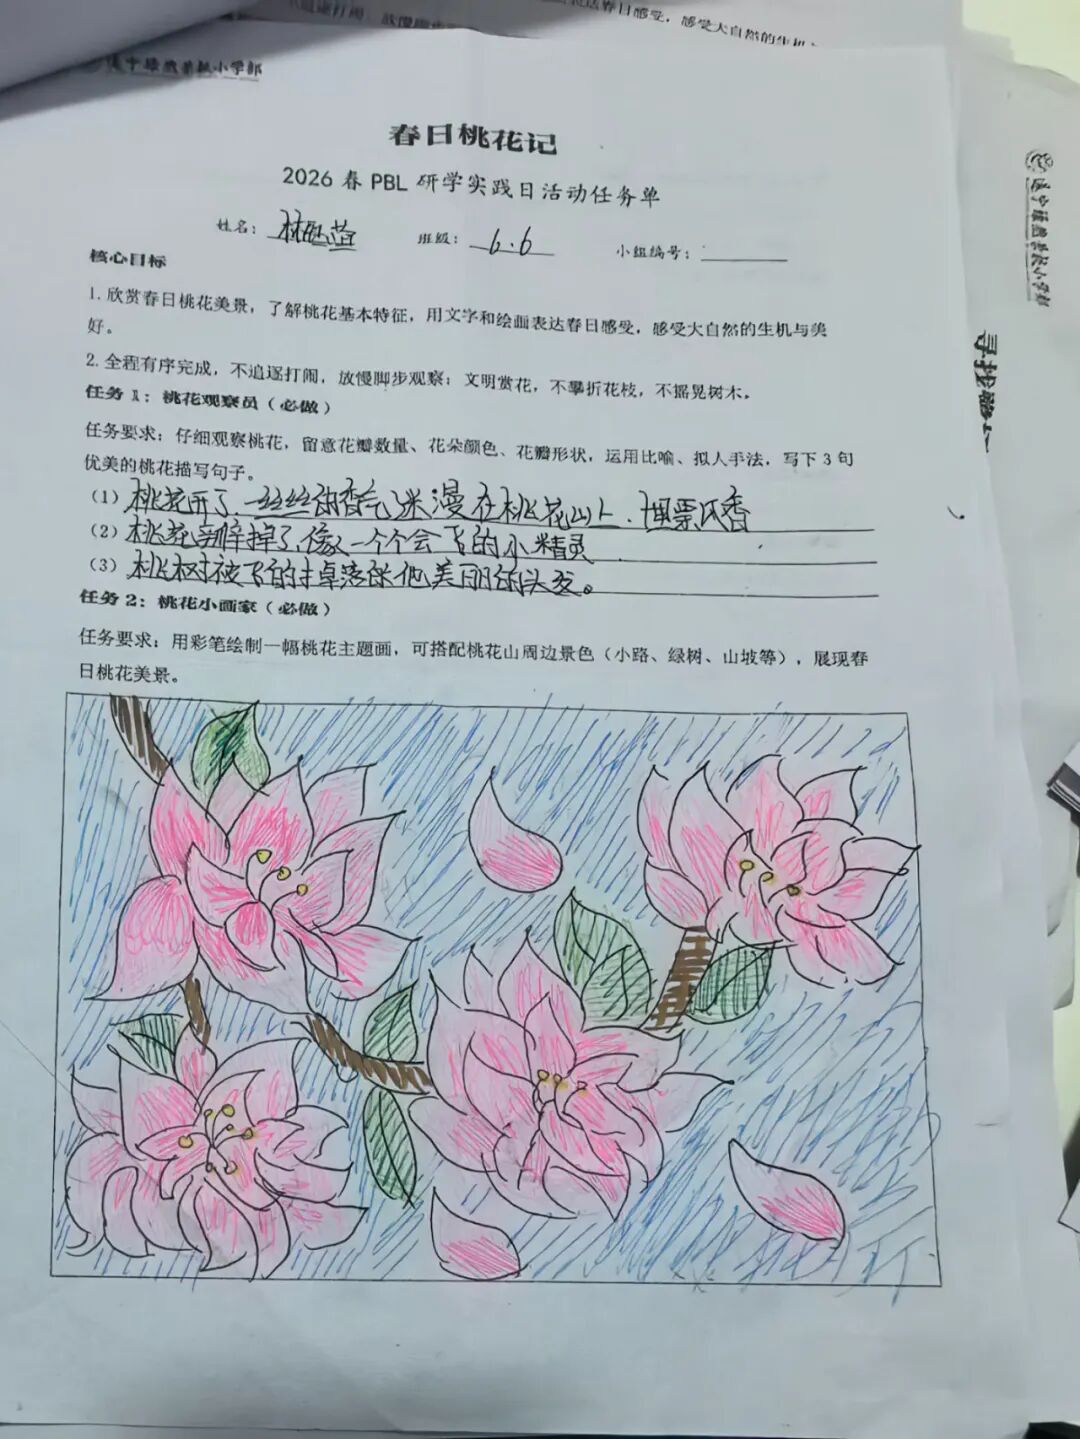 表达春日感受，感受大自然的生机
小学部
春日桃花记
2026 春 PBL 研学实践日活动任务单
姓名： 班级：6.6 小组编号：
核心目标
1. 欣赏春日桃花美景，了解桃花基本特征，用文字和绘画表达春日感受，感受大自然的生机与美
好。
2. 全程有序完成，不追逐打闹，放慢脚步观察；文明赏花，不攀折花枝，不摇晃树木。
任务 1：桃花观察员（必做）
任务要求：仔细观察桃花，留意花瓣数量、花朵颜色、花瓣形状，运用比喻、拟人手法，写下 3 句
优美的桃花描写句子。
（1）桃花开了，一丝丝的香气弥漫在桃花山上，
（2）桃花瓣掉了，像一个个会飞的小精灵
（3）桃树被飞的 落 他美丽的头发。
任务 2：桃花小画家（必做）
任务要求：用彩笔绘制一幅桃花主题画，可搭配桃花山周边景色（小路、绿树、山坡等），展现春
日桃花美景。
小学部
寻找